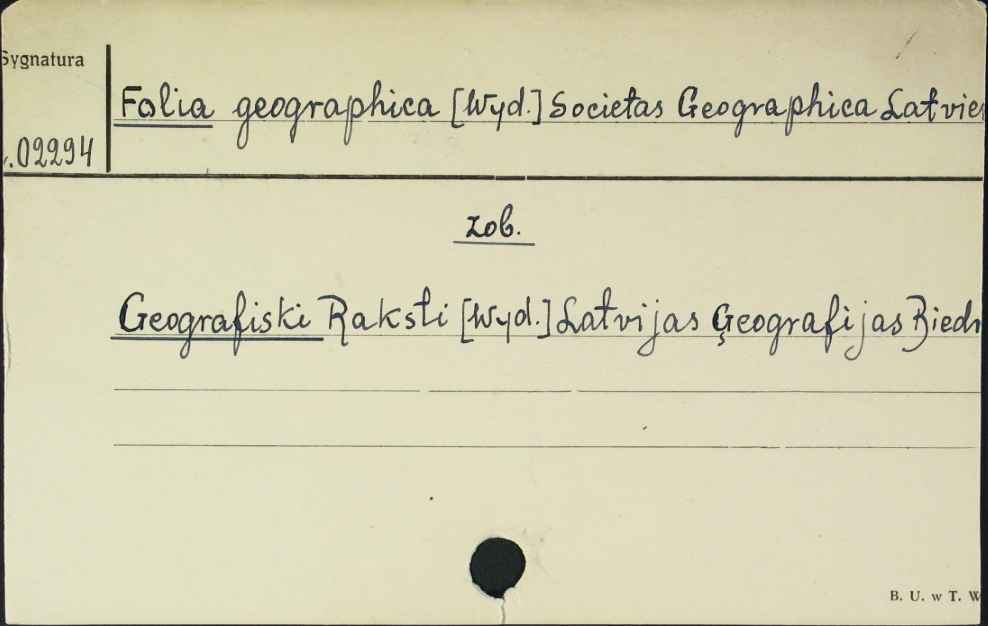 Sygnatura
Folia geographica [Wyd.] Societas Geographica Latvie
.02294
zob.
Geografiski Raksti [Wyd.] Latvijas Ģeografijas Biedr
B. U. w T. W